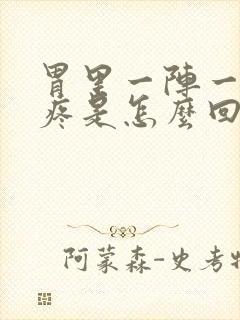 胃里一陣一
疼是怎麼回
阿蒙森-史考特